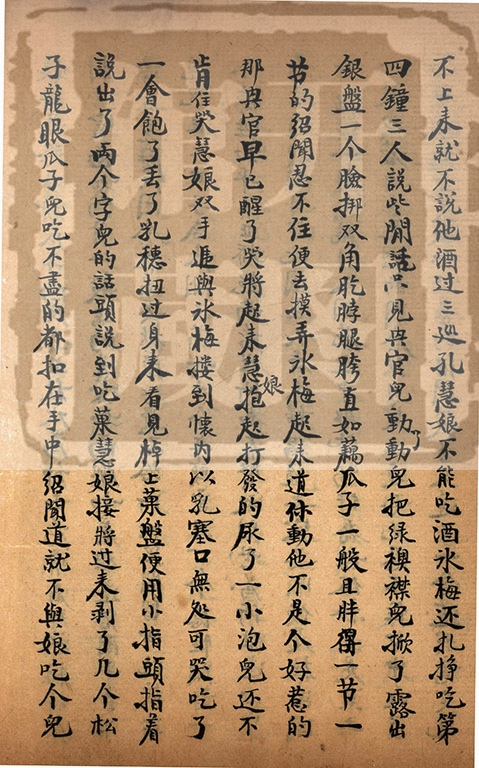 不上来就不说他酒过三巡孔慧娘不能吃酒冰梅还扎挣吃第
四鐘三人説些閒話只見兴官兒動了動兒把绿襖襟兒掀了露出
銀盤一个臉挷双角肐脖腿胯直如藕瓜子一般且胖得一节一
节的绍聞忍不住便去摸弄冰梅起来道休動他不是个好惹的
那兴官早已醒了哭將起来慧娘抱起打發的尿了一小泡兒还不
肯住哭慧娘双手遞與冰梅搂到懷内以乳塞口無处可哭吃了
一會飽了丢了乳穗扭过身来看見棹上菓盤便用小指頭指着
説出了两个字兒的話頭説到吃菓慧娘接將过来剥了几个松
子龍眼瓜子兒吃不盡的都扣在手中绍聞道就不與娘吃个兒